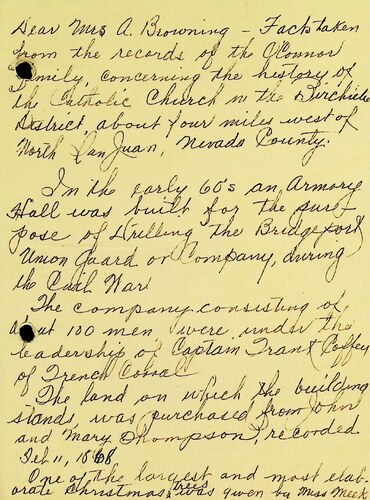 Dear Mrs A. Browning - Facts taken
from the records of the O'Connor
Family, concerning the history of
the Catholic Church in the Birchville
District about four miles west of
North San Juan, Nevada County.
In the early 60's an Armory
Hall was built for the pur-
pose of Drilling the Bridgeport
Union Guard or Company, during
the Civil War.
The company consisting of
about 100 men were under the
leadership of Captain Frank Coffey
of French Corral
The land on which the building
stands, was purchased from John
and Mary Thompson, recorded
Feb 11, 1868
One of the largest and most elab-
orate Christmas trees was given by Miss Meek